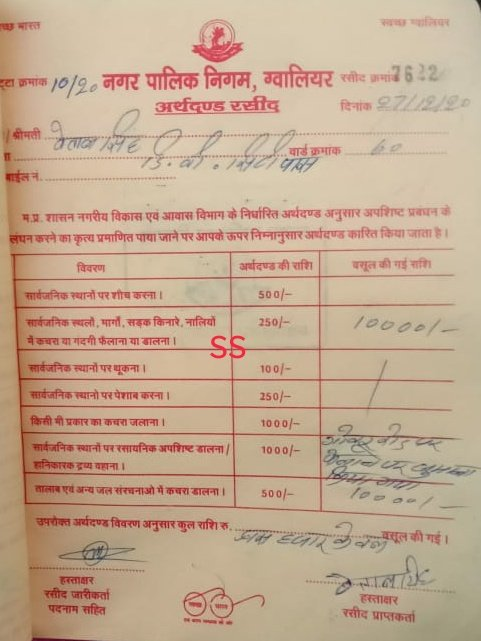 च्छ भारत
स्वच्छ ग्वालियर
ट्टा क्रमांक 10/20 नगर पालिक निगम, ग्वालियर रसीद क्रमांक 7622
अर्थदण्ड रसीद
दिनांक 27/12/20
श्रीमती
डी. वी. सिटी वार्ड क्रमांक 60
बाईल नं.
म.प्र. शासन नगरीय विकास एवं आवास विभाग के निर्धारित अर्थदण्ड अनुसार अपशिष्ट प्रबंधन के
लंघन करने का कृत्य प्रमाणित पाया जाने पर आपके ऊपर निम्नानुसार अर्थदण्ड कारित किया जाता है।
विवरण अर्थदण्ड की राशि वसूल की गई राशि
सार्वजनिक स्थानों पर शौच करना। 500/-
सार्वजनिक स्थलों, मार्गो, सड़क किनारे, नालियों 250/- 10000/-
में कचरा या गंदगी फैलाना या डालना।
SS
सार्वजनिक स्थानों पर थूकना। 100/-
सार्वजनिक स्थानो पर पेशाब करना। 250/-
किसी भी प्रकार का कचरा जलाना। 1000/-
सार्वजनिक स्थानों पर रसायनिक अपशिष्ट डालना/ 1000/-
हानिकारक द्रव्य वहाना।
तालाब एवं अन्य जल संरचनाओ में कचरा डालना। 500/- 10000/-
उपरोक्त अर्थदण्ड विवरण अनुसार कुल राशि रु. दस हजार केवल वसूल की गई।
हस्ताक्षर
रसीद जारीकर्ता
पदनाम सहित
स्वच्छ भारत
हस्ताक्षर
रसीद प्राप्तकर्ता